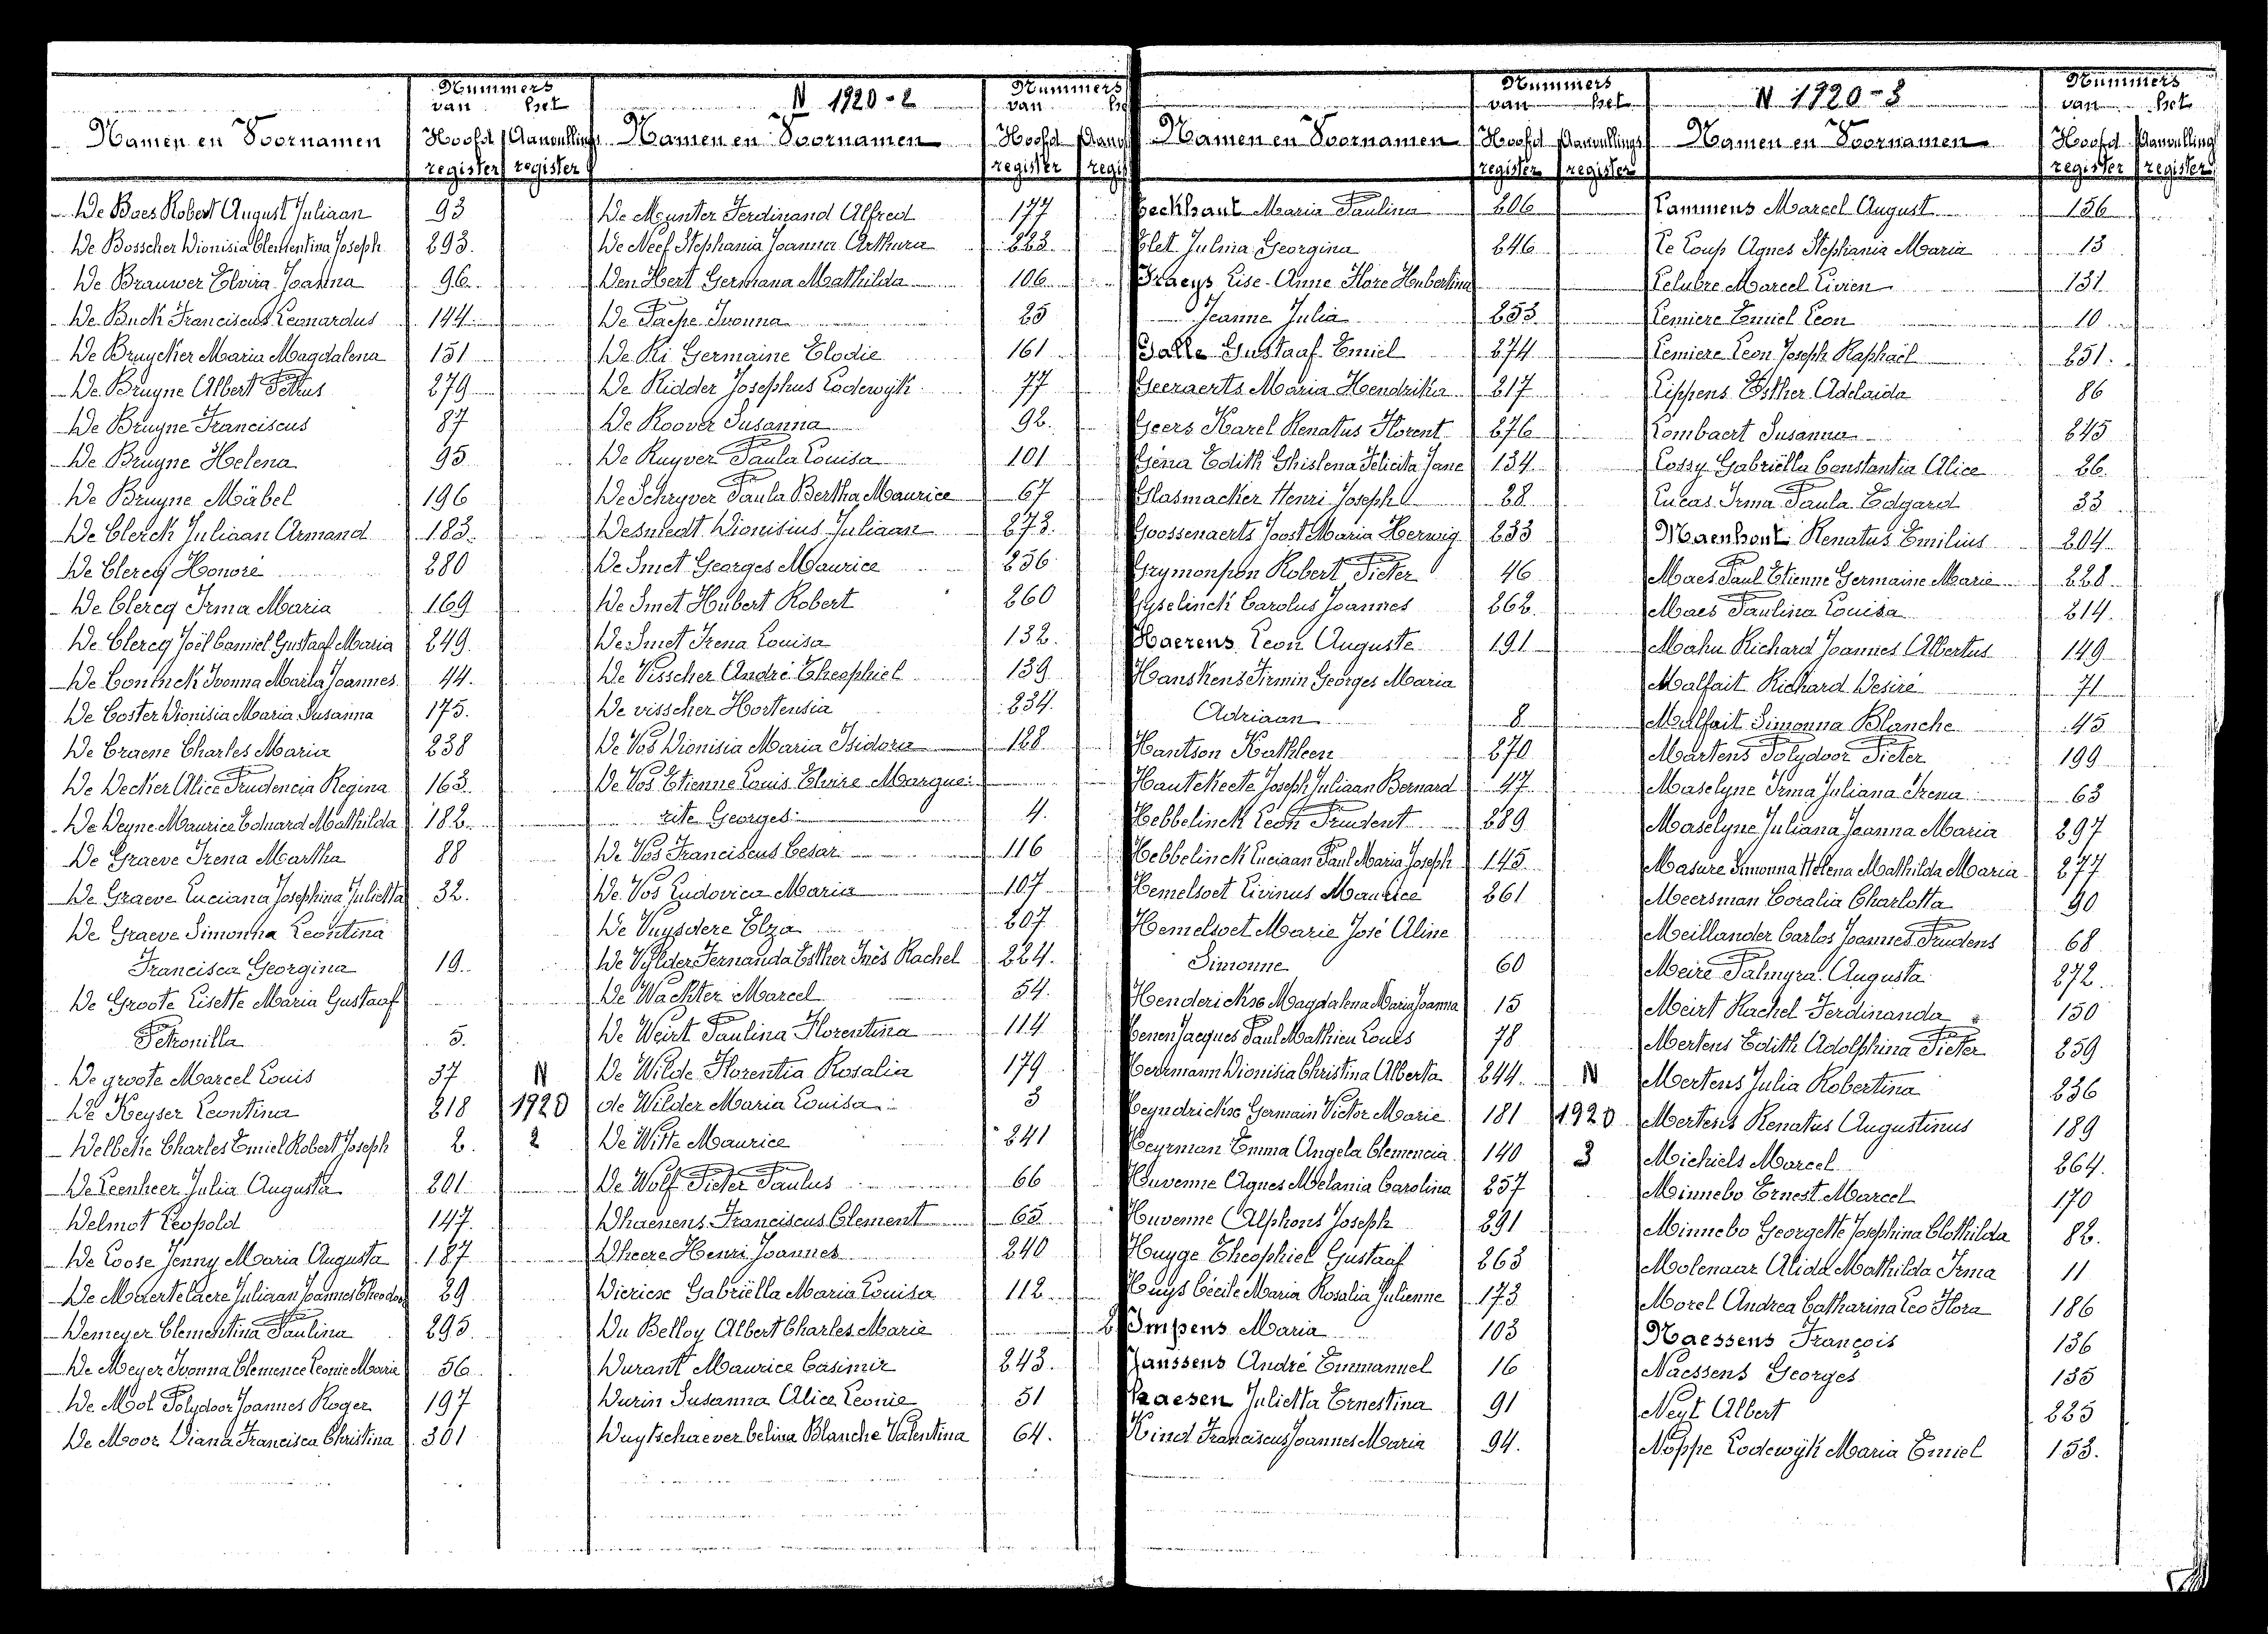 N 1920-2
Namen en Voornamen
Nummers
van het
Hoofd register
Aanvullings register
De Baes Robert August Juliaan 93
De Bosscher Dionisia Clementina Joseph 293.
De Brauwer Elvira Joanna 96
De Buck Franciscus Leonardus 144
De Bruycker Maria Magdalena 151
De Bruyne Albert Petrus 279
De Bruyne Franciscus 87
De Bruyne Helena 95
De Bruyne Mäbel 196
De Clerck Juliaan Armand 183.
De Clercq Honoré 280
De Clercq Irma Maria 169
De Clercq Joël Camiel Gustaaf Maria 249.
De Coninck Ivonna Maria Joannes 44.
De Coster Dionisia Maria Susanna 175.
De Craene Charles Maria 238
De Decker Alice Prudencia Regina 163.
De Deyne Maurice Eduard Mathilda 182.
De Graeve Irena Martha 88
De Graeve Luciana Josephina Julietta 32.
De Graeve Simonna Leontina
Francisca Georgina 19.
De Groote Lisette Maria Gustaaf
Petronilla 5.
De groote Marcel Louis 37 N
De Keyser Leontina 218 1920
Delbeke Charles Emiel Robert Joseph 2. 2
De Leenheer Julia Augusta 201
Delmot Leopold 147.
De Loose Jenny Maria Augusta 187
De Maertelaere Juliaan Joannes Theodoor 29
Demeyer Clementina Paulina 295.
De Meyer Ivonna Clemence Leonie Marie 56
De Mol Polydoor Joannes Roger 197
De Moor Diana Francisca Christina 301
Namen en Voornamen
Nummers
van
Hoofd register
De Munter Ferdinand Alfred 177
De Neef Stephania Joanna Arthura 223.
Den Hert Germana Mathilda 106
De Paepe Ivonna 25
De Ri Germaine Elodie 161
De Ridder Josephus Lodewyk 77
De Roover Susanna 92.
De Ruyver Paula Louisa 101
De Schryver Paula Bertha Maurice 67
Desmedt Dionisius Juliaan 273.
De Smet Georges Maurice 256
De Smet Hubert Robert 260
De Smet Irena Louisa 132.
De Visscher André Theophiel 139
De visscher Hortensia 234.
De Vos Dionisia Maria Isidora 128
De Vos Etienne Louis Elvire Margue-
rite Georges 4.
De Vos Franciscus Cesar 116
De Vos Ludovica Maria 107
De Vuysdere Elza 207
De Vylder Fernanda Esther Inès Rachel 224.
De Wachter Marcel 54.
De Weirt Paulina Florentina 114
De Wilde Florentia Rosalia 179
de Wilder Maria Louisa 3
De Witte Maurice 241
De Wolf Pieter Paulus 66
Dhaenens Franciscus Clement 65
Dheere Henri Joannes 240
Diericx Gabriëlla Maria Louisa 112
Du Belloy Albert Charles Marie 2
Durant Maurice Casimir 243.
Durin Susanna Alice Leonie 51
Duytschaever Celina Blanche Valentina 64.
Namen en Voornamen
Nummers
van het
Hoofd register
Aanvullings register
Eeckhaut Maria Paulina 206
Elet Julma Georgina 246
Fraeys Lise-Anne Flore Hubertina
Jeanne Julia 253.
Galle Gustaaf Emiel 274
Geeraerts Maria Hendrika 217
Geers Karel Renatus Florent 276
Gena Edith Ghislena Felicita Jane 134.
Glasmacker Henri Joseph 28
Goossenaerts Joost Maria Herwig 233
Grymonpon Robert Pieter 46
Gyselinck Carolus Joannes 262.
Haerens Leon Auguste 191
Hanskens Firmin Georges Maria
Adriaan 8
Hantson Kathleen 270
Hautekeete Joseph Juliaan Bernard 47
Hebbelinck Leon Prudent 289
Hebbelinck Luciaan Paul Maria Joseph 145
Hemelsoet Livinus Maurice 261
Hemelsoet Marie José Aline
Simonne 60
Henderickse Magdalena Maria Joanna 15
Henen Jacques Paul Mathieu Louis 78
Herrmann Dionisia Christina Alberta 244. N
Heyndrickse Germain Victor Marie 181 1920
Heyrman Emma Angela Clemencia 140 3
Huvenne Agnes Melania Carolina 257
Huvenne Alphons Joseph 291
Huyge Theophiel Gustaaf 263
Huys Cécile Maria Rosalia Julienne 173
Impens Maria 103
Janssens André Emmanuel 16
Kaesen Julietta Ernestina 91
Kind Franciscus Joannes Maria 94.
N 1920-3
Namen en Voornamen
Nummers
van het
Hoofd register
Aanvulling register
Lammens Marcel August 156
Le Loup Agnes Stephania Maria 13
Lelubre Marcel Livien 131
Lemiere Emiel Leon 10
Lemiere Leon Joseph Raphaël 251.
Lippens Esther Adelaida 86
Lombaert Susanna 245
Lossy Gabriëlla Constantia Alice 26.
Lucas Irma Paula Edgard 33
Maenhout Renatus Emilius 204
Maes Paul Etienne Germaine Marie 228
Maes Paulina Louisa 214.
Mahu Richard Joannes Albertus 149
Malfait Richard Desiré 71
Malfait Simonna Blanche 45
Martens Polydoor Pieter 199
Maselyne Irma Juliana Irena 63
Maselyne Juliana Joanna Maria 297
Masure Simonna Helena Mathilda Maria 277
Meersman Coralia Charlotta 90
Meillander Carlos Joannes Prudens 68
Meire Palmyra Augusta 272.
Meirt Rachel Ferdinanda 150
Mertens Edith Adolphina Pieter 259
Mertens Julia Robertina 236
Mertens Renatus Augustinus 189
Michiels Marcel 264.
Minnebo Ernest Marcel 170
Minnebo Georgette Josephina Clothilda 82.
Molenaar Alida Mathilda Irma 11
Morel Andrea Catharina Leo Flora 186
Naessens François 136
Naessens Georges 135
Neyt Albert 225
Noppe Lodewyk Maria Emiel 153.